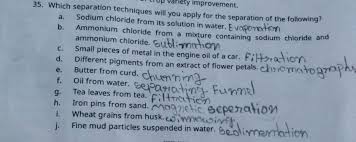 variety improvement.
35. Which separation techniques will you apply for the separation of the following?
a. Sodium chloride from its solution in water. Evaporation
b. Ammonium chloride from a mixture containing sodium chloride and
ammonium chloride. Sublimation
c. Small pieces of metal in the engine oil of a car. Filtration
d. Different pigments from an extract of flower petals. chromatography
e. Butter from curd. churning
f. Oil from water. separating Funnel
g. Tea leaves from tea. Filtration
h. Iron pins from sand. magnetic seperation
i. Wheat grains from husk. winnowing
j. Fine mud particles suspended in water. Sedimentation